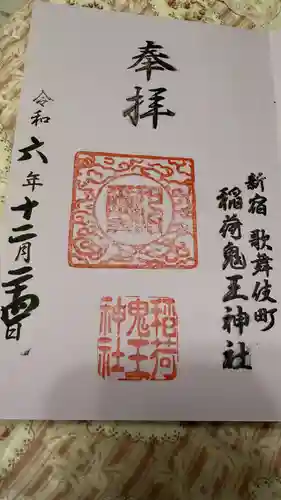 奉拝
新宿 歌舞伎町
稲荷鬼王神社
稲荷
鬼王
神社
令和六年十二月二十四日